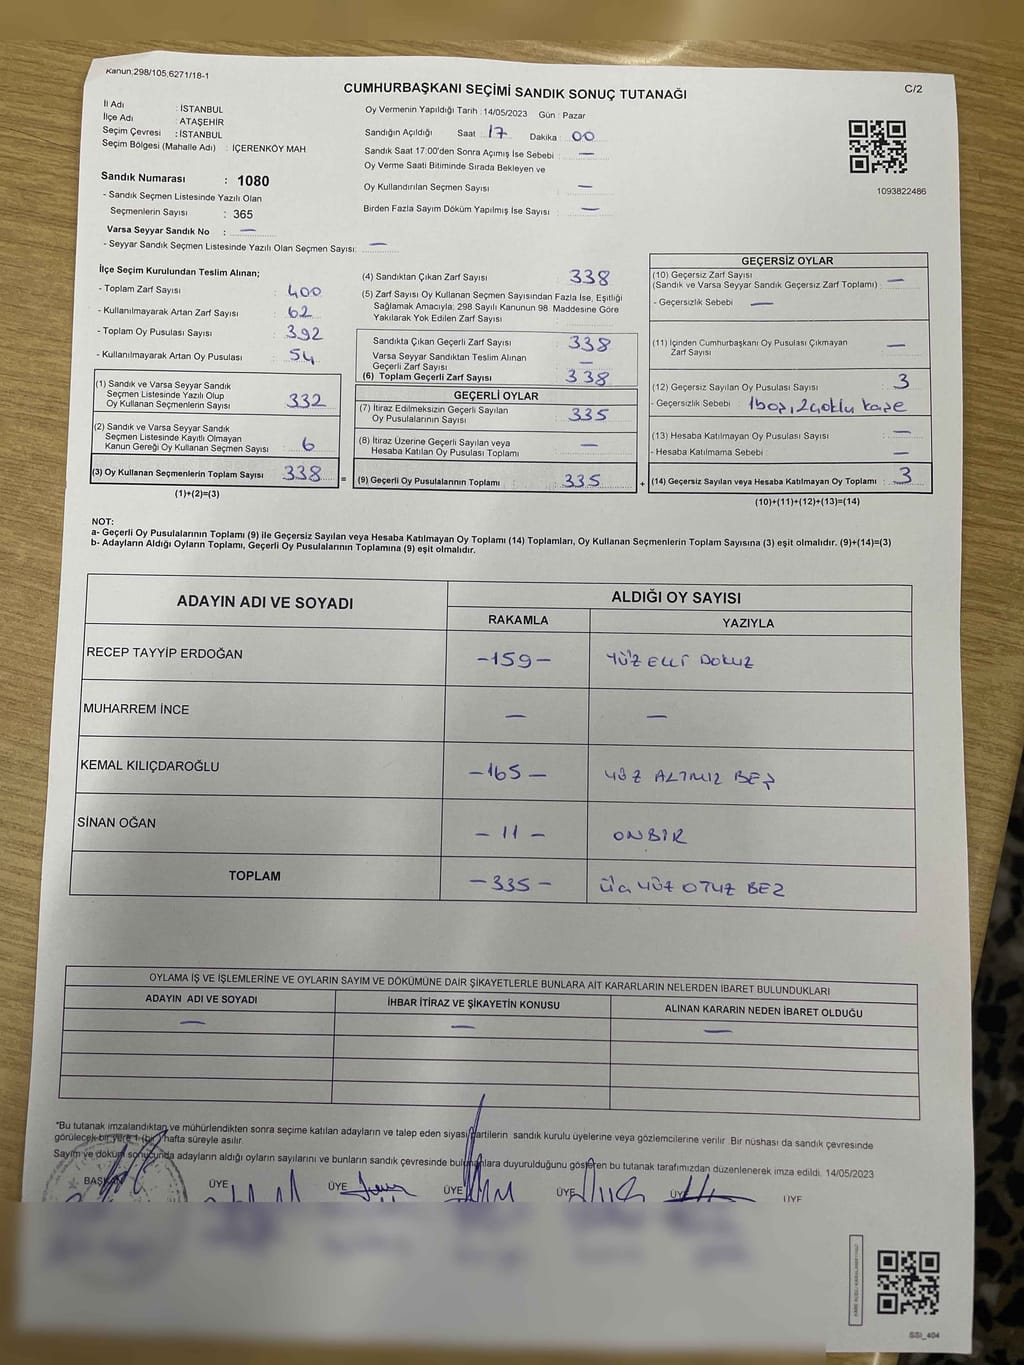 Kanun;298/105;6271/18-1
CUMHURBAŞKANI SEÇİMİ SANDIK SONUÇ TUTANAĞI
C/2
İl Adı : İSTANBUL
İlçe Adı : ATAŞEHİR
Seçim Çevresi : İSTANBUL
Seçim Bölgesi (Mahalle Adı) : İÇERENKÖY MAH
Sandık Numarası : 1080
- Sandık Seçmen Listesinde Yazılı Olan
Seçmenlerin Sayısı : 365
Varsa Seyyar Sandık No : —
- Seyyar Sandık Seçmen Listesinde Yazılı Olan Seçmen Sayısı: —
Oy Vermenin Yapıldığı Tarih : 14/05/2023 Gün : Pazar
Sandığın Açıldığı Saat : 17 Dakika : 00
Sandık Saat 17:00'den Sonra Açımış İse Sebebi : —
Oy Verme Saati Bitiminde Sırada Bekleyen ve
Oy Kullandırılan Seçmen Sayısı —
Birden Fazla Sayım Döküm Yapılmış İse Sayısı : —
1093822486
İlçe Seçim Kurulundan Teslim Alınan;
- Toplam Zarf Sayısı : 400
- Kullanılmayarak Artan Zarf Sayısı : 62
- Toplam Oy Pusulası Sayısı : 392
- Kullanılmayarak Artan Oy Pusulası : 54
(1) Sandık ve Varsa Seyyar Sandık
Seçmen Listesinde Yazılı Olup
Oy Kullanan Seçmenlerin Sayısı : 332
(2) Sandık ve Varsa Seyyar Sandık
Seçmen Listesinde Kayıtlı Olmayan
Kanun Gereği Oy Kullanan Seçmen Sayısı : 6
(3) Oy Kullanan Seçmenlerin Toplam Sayısı : 338
(1)+(2)=(3)
(4) Sandıktan Çıkan Zarf Sayısı : 338
(5) Zarf Sayısı Oy Kullanan Seçmen Sayısından Fazla İse, Eşitliği
Sağlamak Amacıyla; 298 Sayılı Kanunun 98. Maddesine Göre
Yakılarak Yok Edilen Zarf Sayısı :
Sandıkta Çıkan Geçerli Zarf Sayısı : 338
Varsa Seyyar Sandıktan Teslim Alınan
Geçerli Zarf Sayısı : —
(6) Toplam Geçerli Zarf Sayısı : 338
=
GEÇERLİ OYLAR
(7) İtiraz Edilmeksizin Geçerli Sayılan
Oy Pusulalarının Sayısı : 335
(8) İtiraz Üzerine Geçerli Sayılan veya
Hesaba Katılan Oy Pusulası Toplamı : —
(9) Geçerli Oy Pusulalarının Toplamı : 335
+
GEÇERSİZ OYLAR
(10) Geçersiz Zarf Sayısı
(Sandık ve Varsa Seyyar Sandık Geçersiz Zarf Toplamı) : —
- Geçersizlik Sebebi : —
(11) İçinden Cumhurbaşkanı Oy Pusulası Çıkmayan
Zarf Sayısı : —
(12) Geçersiz Sayılan Oy Pusulası Sayısı : 3
- Geçersizlik Sebebi : 1boş, 2çoklu kaşe
(13) Hesaba Katılmayan Oy Pusulası Sayısı : —
- Hesaba Katılmama Sebebi : —
(14) Geçersiz Sayılan veya Hesaba Katılmayan Oy Toplamı : 3
(10)+(11)+(12)+(13)=(14)
NOT:
a- Geçerli Oy Pusulalarının Toplamı (9) ile Geçersiz Sayılan veya Hesaba Katılmayan Oy Toplamı (14) Toplamları, Oy Kullanan Seçmenlerin Toplam Sayısına (3) eşit olmalıdır. (9)+(14)=(3)
b- Adayların Aldığı Oyların Toplamı, Geçerli Oy Pusulalarının Toplamına (9) eşit olmalıdır.
ADAYIN ADI VE SOYADI ALDIĞI OY SAYISI
RAKAMLA YAZIYLA
RECEP TAYYİP ERDOĞAN -159- YÜZ ELLİ DOKUZ
MUHARREM İNCE — —
KEMAL KILIÇDAROĞLU -165- YÜZ ALTMIZ BEŞ
SİNAN OĞAN - 11 - ONBİR
TOPLAM -335- ÜÇ YÜZ OTUZ BEZ
OYLAMA İŞ VE İŞLEMLERİNE VE OYLARIN SAYIM VE DÖKÜMÜNE DAİR ŞİKAYETLERLE BUNLARA AİT KARARLARIN NELERDEN İBARET BULUNDUKLARI
ADAYIN ADI VE SOYADI İHBAR İTİRAZ VE ŞİKAYETİN KONUSU ALINAN KARARIN NEDEN İBARET OLDUĞU
— — —
*Bu tutanak imzalandıktan ve mühürlendikten sonra seçime katılan adayların ve talep eden siyasi partilerin sandık kurulu üyelerine veya gözlemcilerine verilir. Bir nüshası da sandık çevresinde
görülecek bir yere 1 (bir) hafta süreyle asılır.
Sayım ve döküm sonucunda adayların aldığı oyların sayılarını ve bunların sandık çevresinde bulunanlara duyurulduğunu gösteren bu tutanak tarafımızdan düzenlenerek imza edildi. 14/05/2023
BAŞKAN ÜYE ÜYE ÜYE ÜYE ÜYE ÜYE
SSİ_404